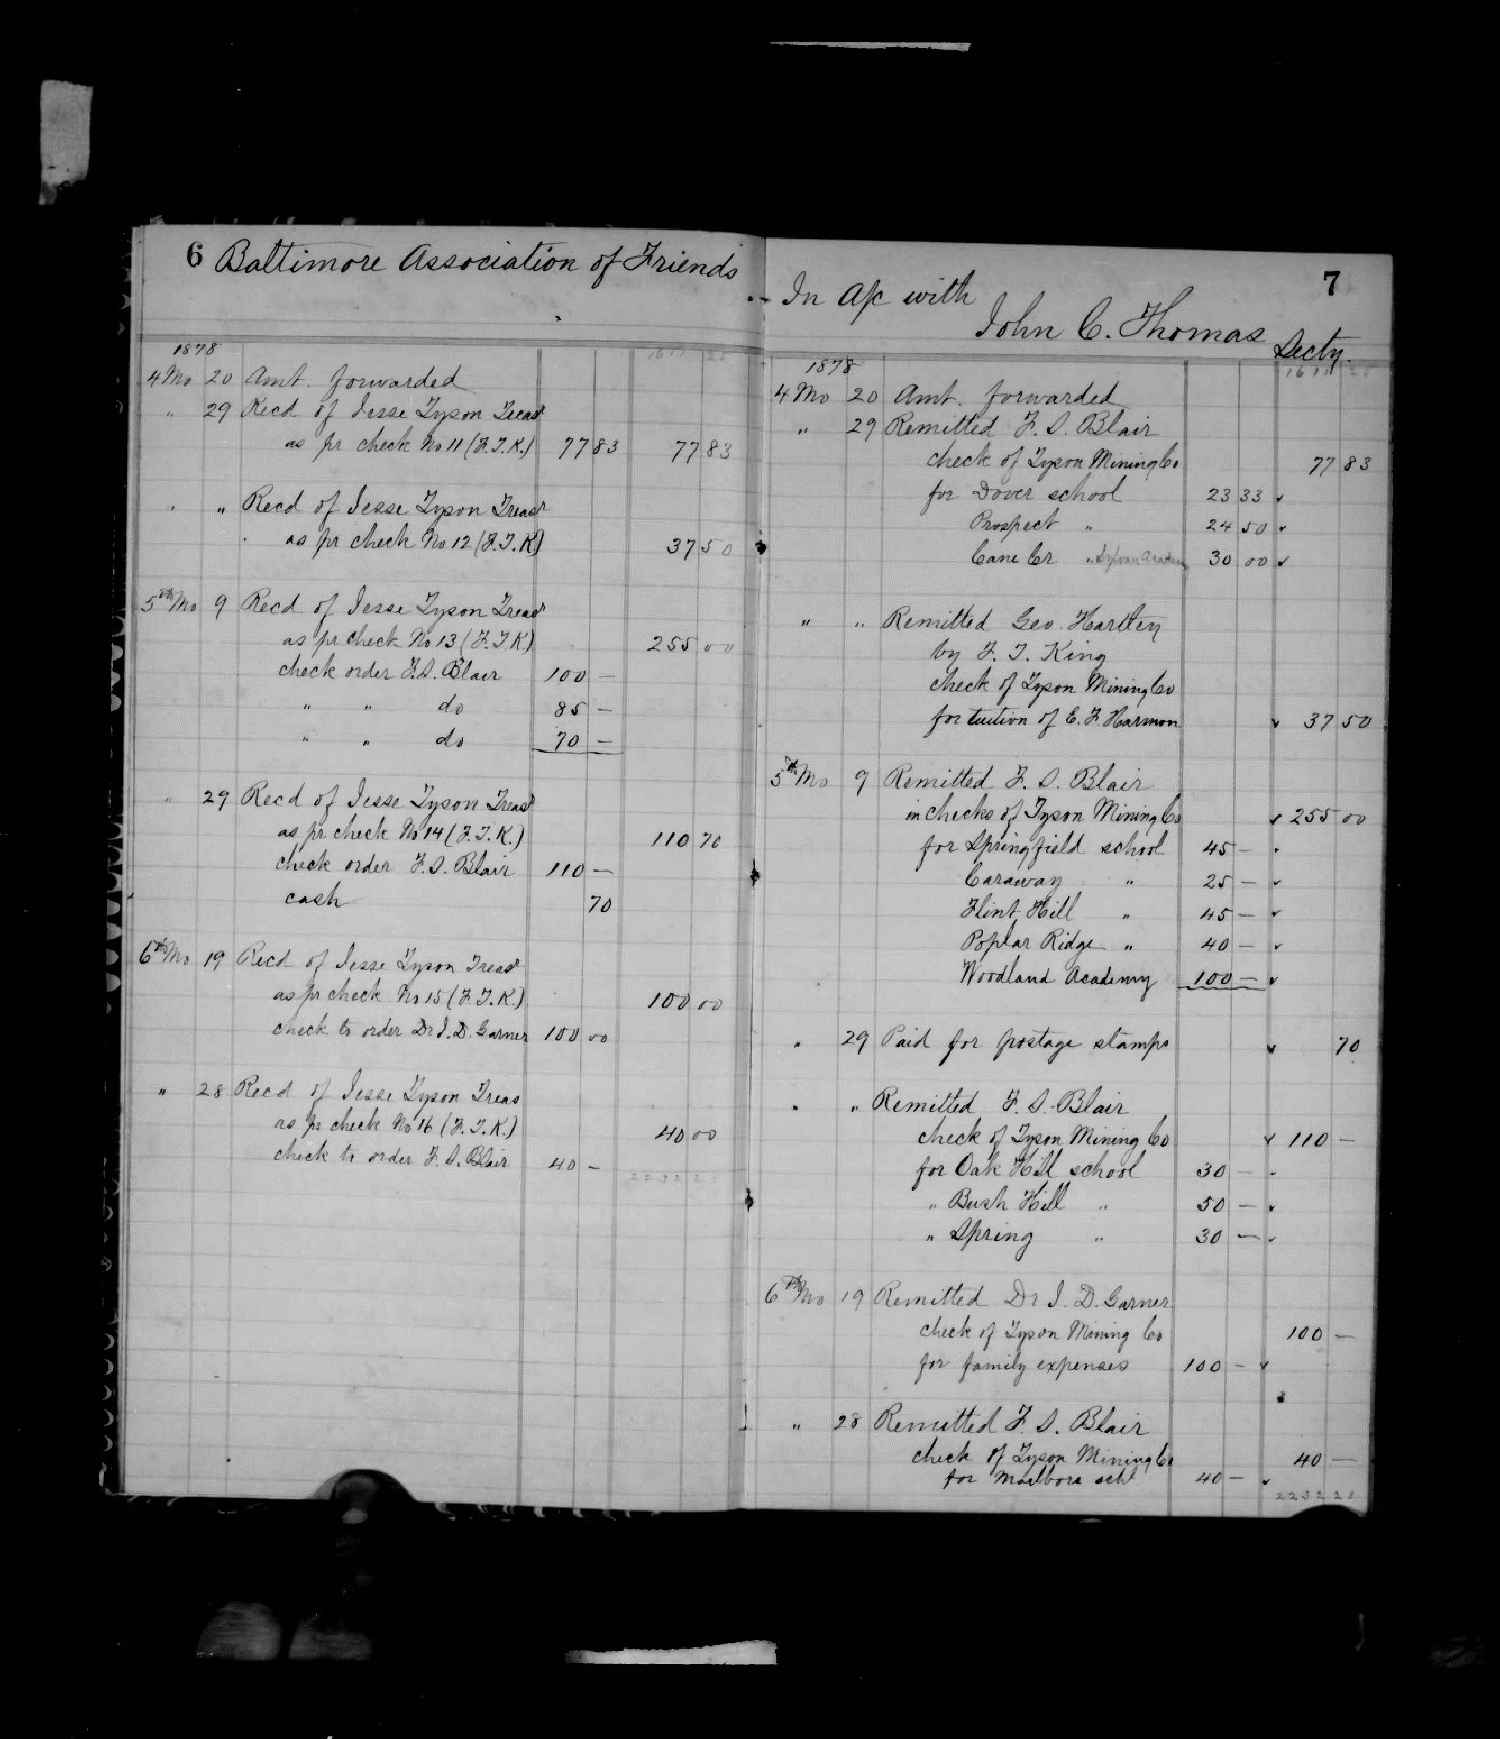 6 Baltimore Association of Friends
1878
4 Mo 20 Amt. forwarded
" 29 Recd of Jesse Tyson Treasr
as pr check No 11 (F.T.K.) 77 83 77 83
" " Recd of Jesse Tyson Treasr
as pr check No 12 (F.T.K) 37 50
5th Mo 9 Recd of Jesse Tyson Treasr
as pr check No 13 (F.T.K) 255 00
check order F.S. Blair 100 —
" " do 85 —
" " do 70 —
" 29 Recd of Jesse Tyson Treasr
as pr check No 14 (F.T.K.) 110 70
check order F.S. Blair 110 —
cash 70
6th Mo 19 Recd of Jesse Tyson Treasr
as pr check No 15 (F.T.K.) 100 00
check to order Dr I.D. Garner 100 00
" 28 Recd of Jesse Tyson Treas
as pr check No 16 (F.T.K.) 40 00
check to order F.S. Blair 40 —
2232 28
7
In A/c with
John C. Thomas Secty.
1878
4 Mo 20 Amt. forwarded
" 29 Remitted F. S. Blair
check of Tyson Mining Co 77 83
for Dover school 23 33
Prospect " 24 50
Cane Cr " Sylvan Academy 30 00
" " Remitted Geo. Hartley
by F. T. King
check of Tyson Mining Co
for tuition of E. F. Harmon 37 50
5th Mo 9 Remitted F. S. Blair
in checks of Tyson Mining Co 255 00
for Springfield school 45 —
Caraway " 25 —
Flint Hill " 45 —
Poplar Ridge " 40 —
Woodland Academy 100 —
" 29 Paid for postage stamps 70
" " Remitted F. S. Blair
check of Tyson Mining Co 110 —
for Oak Hill school 30 —
" Bush Hill " 50 —
" Spring " 30 —
6th Mo 19 Remitted Dr I. D. Garner
check of Tyson Mining Co 100 —
for family expenses 100 —
" 28 Remitted F. S. Blair
check of Tyson Mining Co 40 —
for Marlboro schl 40 —
2232 28